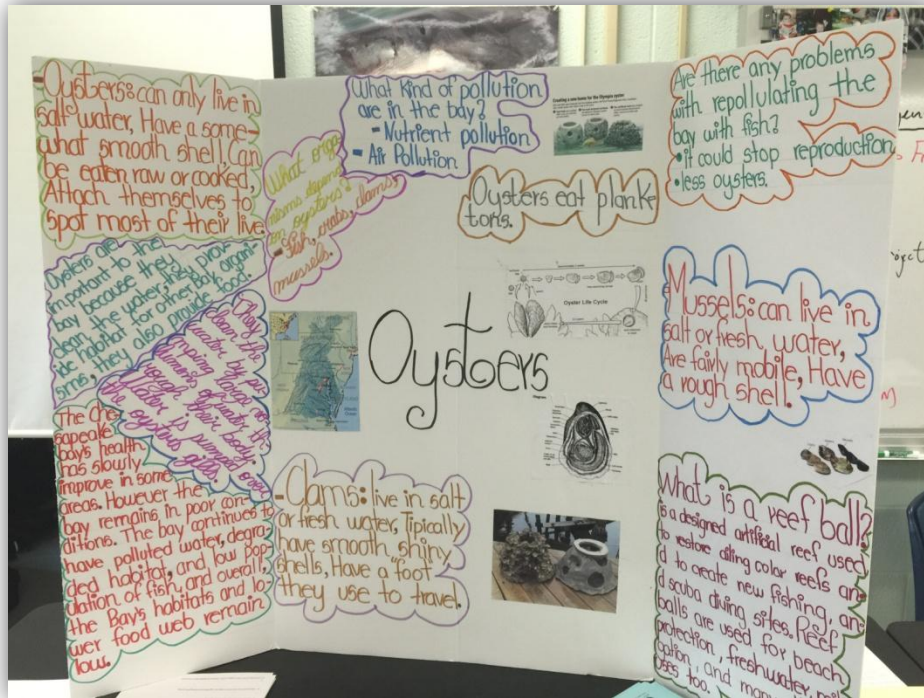 -Oysters: can only live in
salt water, Have a some-
what smooth shell, Can
be eaten raw or cooked,
Attach themselves to
spot most of their live.
Oysters are
important to the
bay because they
clean the water, they prov-
ide habitat for other Bay organi-
sms, they also provide food.
They
clean the
water by pu-
mping large vo-
lumes of water th-
rough their body.
Water is pumped over
the oysters gills.
The Che-
sapeake
bay's health
has slowly
improve in some
areas. However the
bay remains in poor con-
ditions. The bay continues to
have polluted water, degra-
ded habitat, and low pop-
ulation of fish, and overall,
the Bay's habitats and lo-
wer food web remain
low.
What kind of pollution
are in the bay?
-Nutrient pollution
-Air Pollution
What orga-
nisms depend
on oysters?
-Fish, crabs, clams,
mussels.
Creating a new home for the Olympia oyster
Oysters eat plank-
tons.
Oyster Life Cycle
Oysters
-Clams: live in salt
or fresh water, Tipically
have smooth, shiny
shells, Have a "foot"
they use to travel.
Are there any problems
with repollulating the
bay with fish?
•it could stop reproduction
•less oysters.
Mussels: can live in
salt or fresh, water,
Are fairly mobile, Have
a rough shell.
What is a reef ball?
is a designed artificial reef used
to restore ailing color reefs an-
d to create new fishing, an-
d scuba diving sites. Reef
balls are used for beach
protection, freshwater,
and many
uses too.